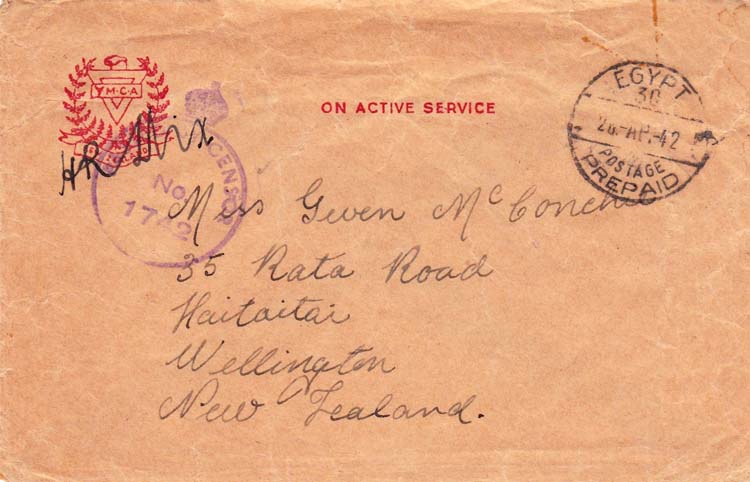 Y.M.C.A
ON ACTIVE SERVICE
EGYPT
30
28-AP.-42
POSTAGE
PREPAID
CENSOR
No.
1742
HR
Miss Gwen McConchie
35 Rata Road
Haitaitai
Wellington
New Zealand.